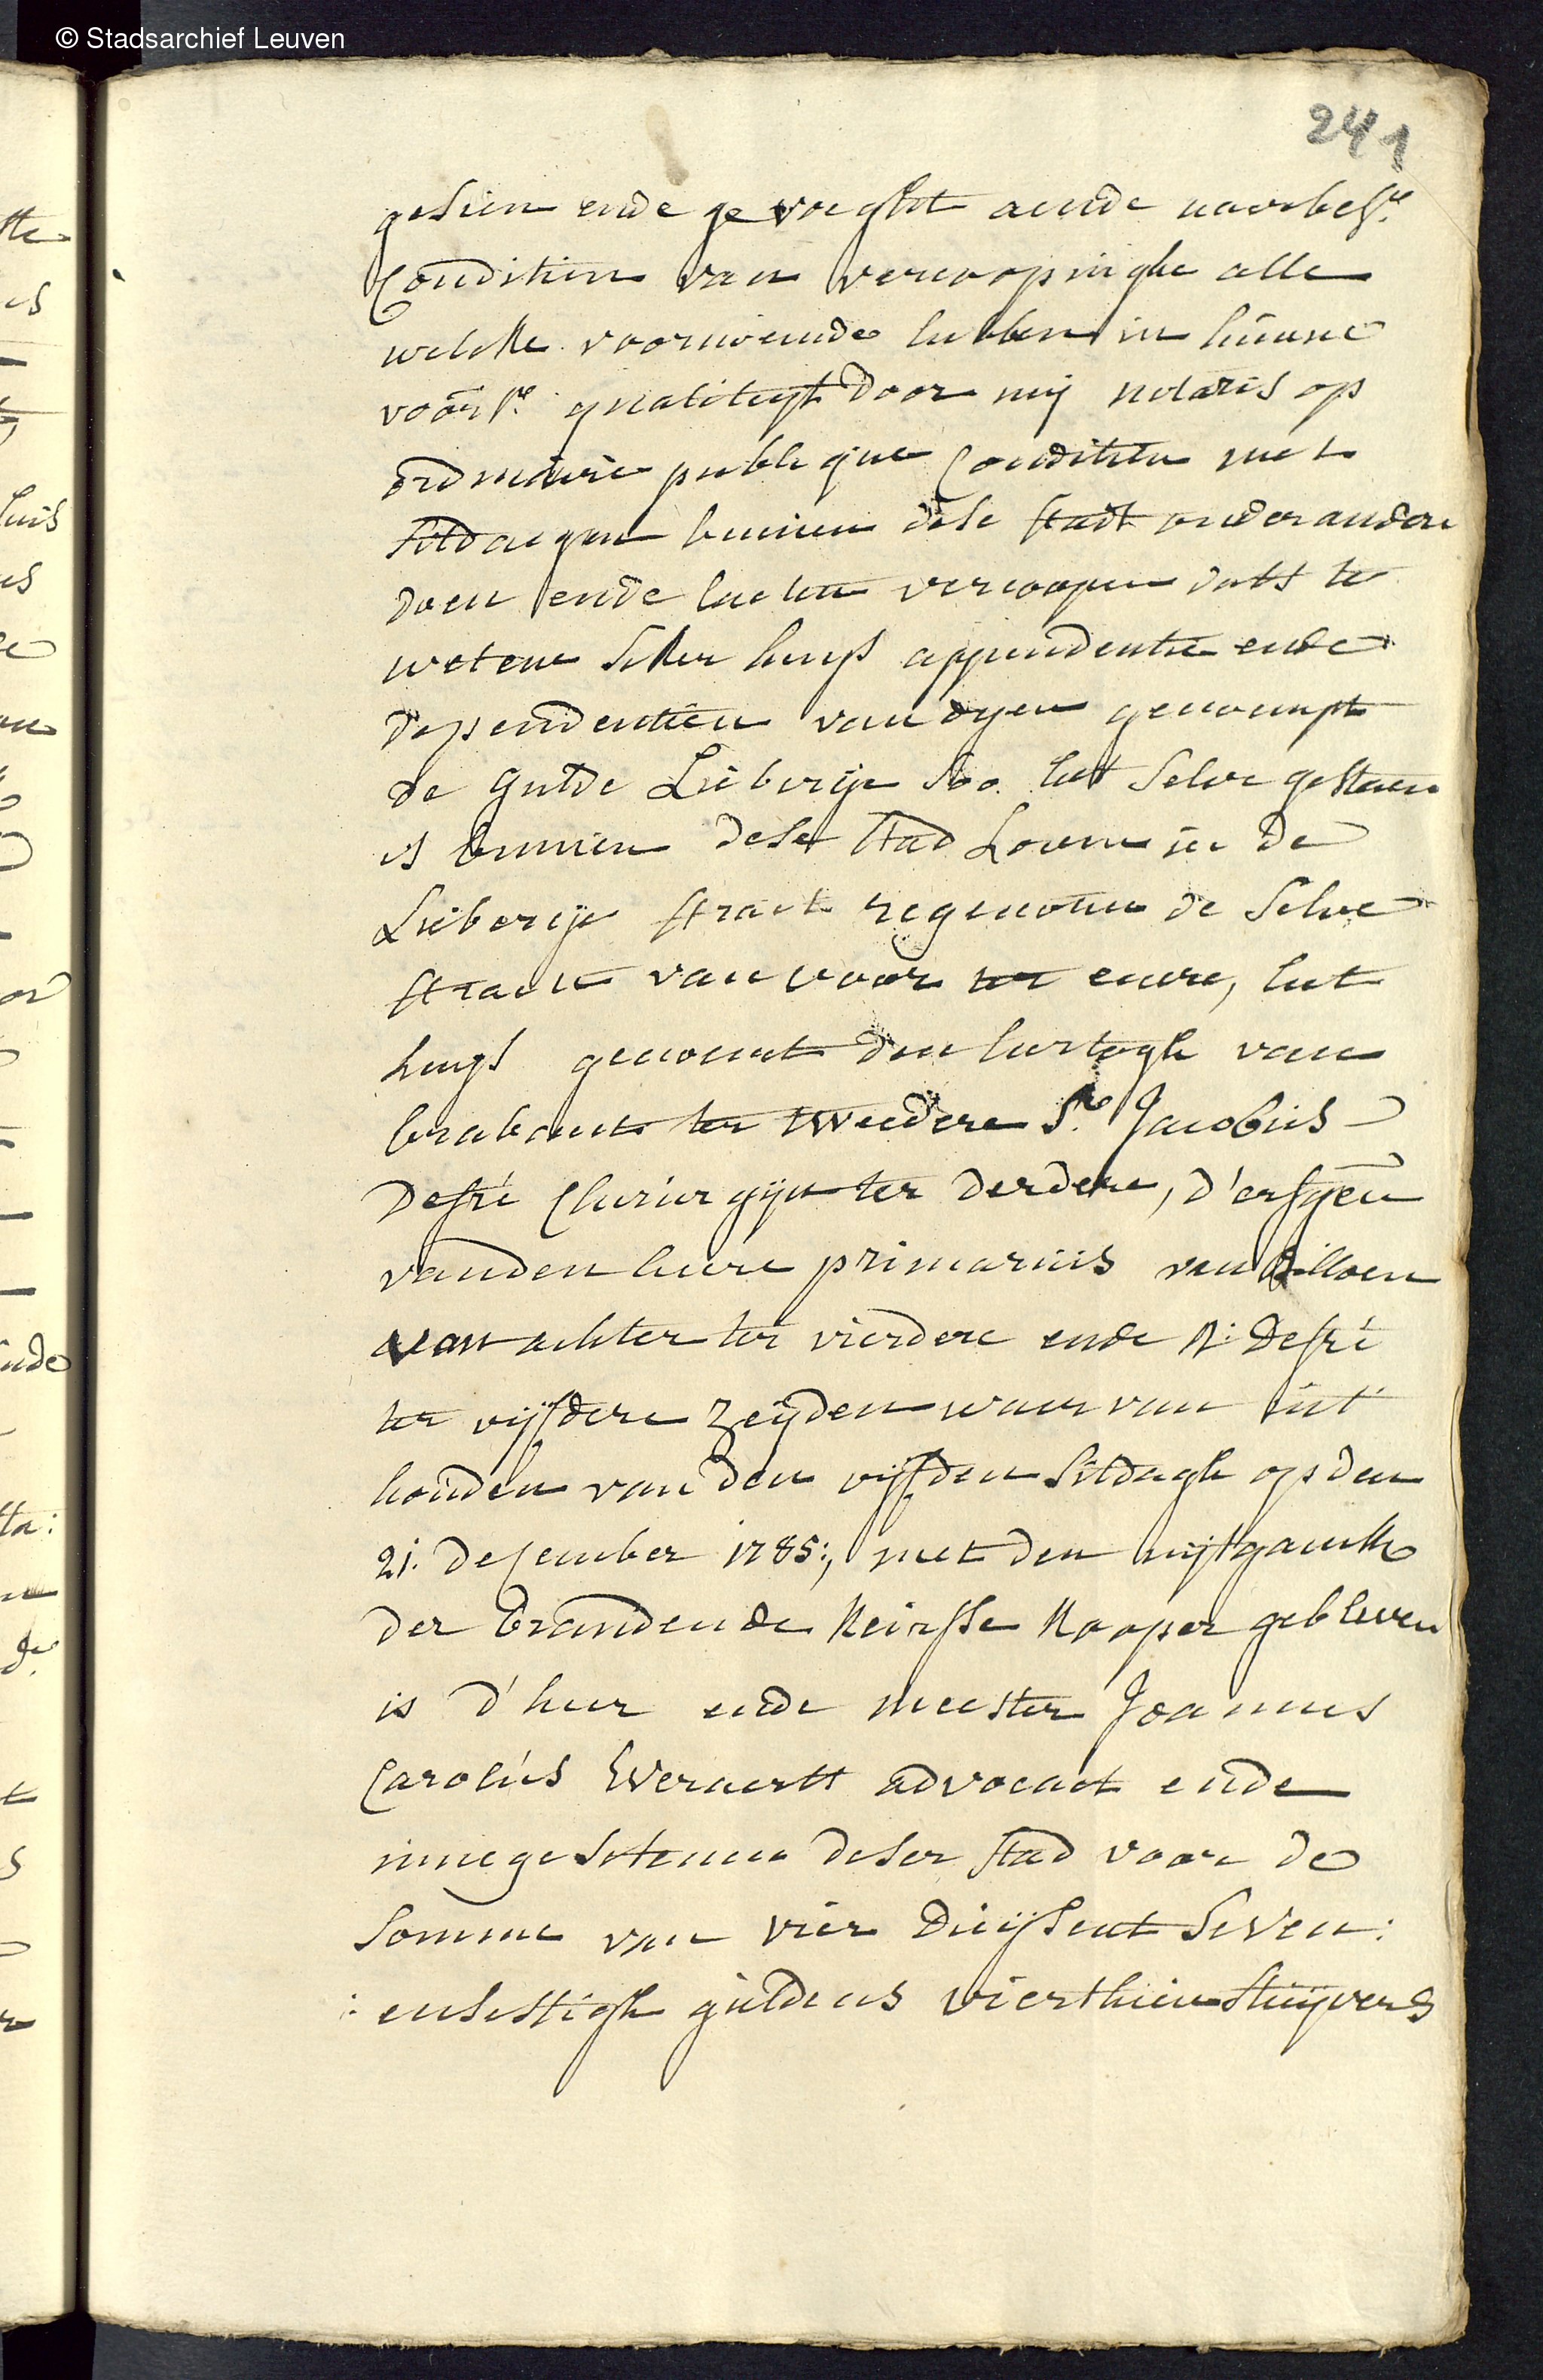 © Stadsarchief Leuven
241
gesien ende gevoeght aende naerbes:e
Conditien van vercoopinghe alle
welcke voornoemde hebben in hunne
voors:e qualiteyt door mij notaris op
ordinaire publique Conditien met
sitdaegen binnen dese stadt onder andere
doen ende laeten vercoopen dats te
weten seker huys appendentie ende
dependentien van dyen genoempt
de gulde Lieberije soo het selve gestaen
is binnen dese stad Loven in de
Lieberije straet regenoten de selve
straete van voor ter eenre, het
huys genoemt den hertogh van
brabant ter tweedere Sr. Jacobus
Defré Chirurgijn ter derdere, d'erfgen
vanden heere primarius van Billoen
van achter ter vierdere ende N: Defré
ter vijfdere zeijden waer van int
houden van den vijfden sitdagh op den
21. december 1785:, met den uijtganck
der brandende keirsse kooper gebleven
is d'heer ende meester Joannes
Carolus Wernerts advocaet ende
innegesetenen deser stad voor de
somme van vier duijsent seven:
:ensestigh guldens vierthien stuijvers